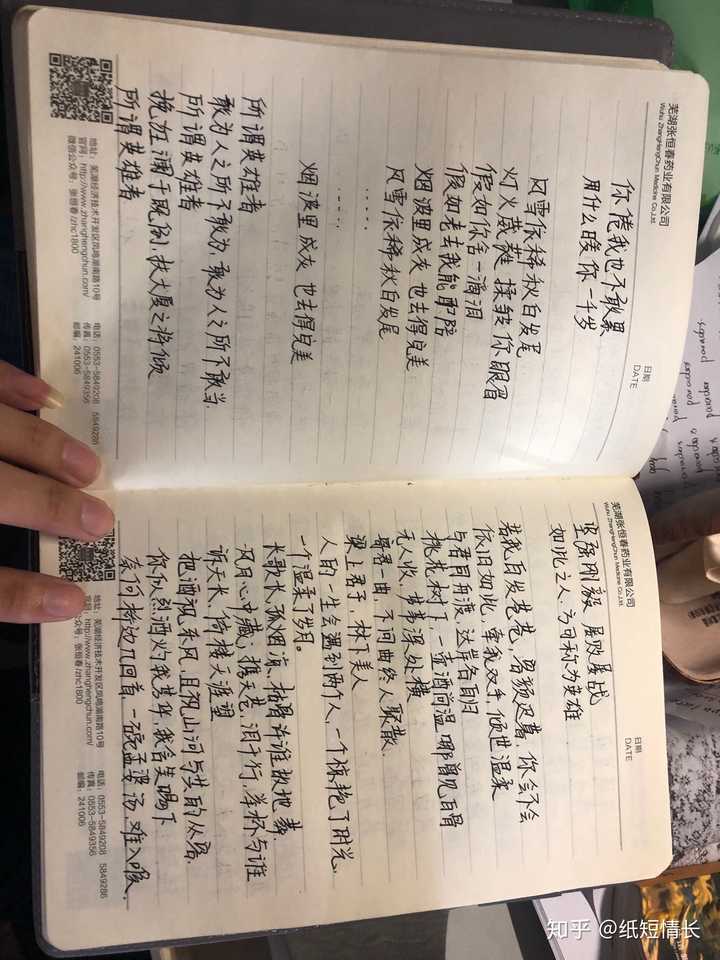 芜湖张恒春药业有限公司
Wuhu ZhangHengChun Medicine Co.,Ltd.
日期
DATE
你倦我也不敢累
用什么暖你一千岁
风雪依稀秋白发尾
灯火葳蕤 揉皱你眼眉
假如你舍一滴泪
假如老去我能陪
烟波里成灰 也去得完美
风雪依稀秋白发尾
.....
.....
烟波里成灰 也去得完美
所谓英雄者
敢为人之所不敢为,敢为人之所不敢当,
所谓英雄者
挽狂澜于既倒,扶大厦之将倾
所谓英雄者
地址:芜湖经济技术开发区凤鸣湖南路10号
官网:http://www.zhanghengchun.com/
微信公众号:张恒春/zhc1800
电话:0553-5849208 5849286
传真:0553-5849356
邮编:241006
芜湖张恒春药业有限公司
Wuhu ZhangHengChun Medicine Co.,Ltd.
日期
DATE
坚强刚毅 屡败屡战
如此之人,方可称为英雄
若我白发苍苍,容颜迟暮,你会不会
依旧如此,牵我双手,倾世温柔
与君同舟渡,达岸各自归
桃花树下,一壶酒尚温,哪曾见白眉
无人收,梦
再奏一曲,不问曲终人聚散
梁上君子,林下美人
人的一生会遇到两个人,一个惊艳了时光,
一个温柔了岁月。
长歌长,孤烟消,枯骨并谁故地葬,
风月心中藏,携天苍,泪千行,举杯与谁
诉天长,倚楼天涯望
把酒祝东风,且祝山河与共的从容,
你似烈酒灼我苦,我含笑喝下
奈何桥边几回首,一碗孟婆汤,难入喉,
地址:芜湖经济技术开发区凤鸣湖南路10号
官网:http://www.zhanghengchun.com/
公众号:张恒春/zhc1800
电话:0553-5849208 5849286
传真:0553-5849356
邮编:241006
知乎 @纸短情长